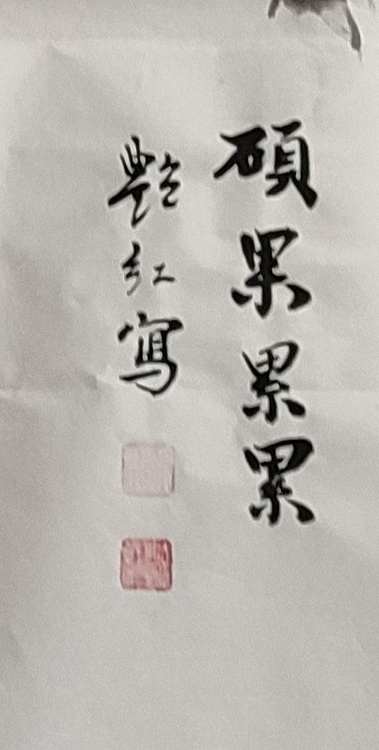 碩果累累
艷红寫